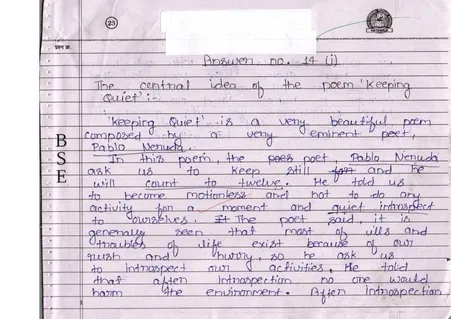 23
प्रश्न क्र.
Answer no. 14 (i)
The central idea of the poem 'Keeping
Quiet' :-
'Keeping Quiet' is a very beautiful poem
composed by a very eminent poet,
Pablo Neruda.
In this poem, the poes poet, Pablo Neruda
ask us to keep still for and he
will count to twelve. He told us
to become motionless and not to do any
activity for a moment and quiet introspect
to ourselves. It The poet said, it is
generally seen that most of ills and
troubles of life exist because of our
rush and hurry, so he ask us
to introspect our activities. He told
that after introspection no one would
harm the environment. After introspection
B
S
E